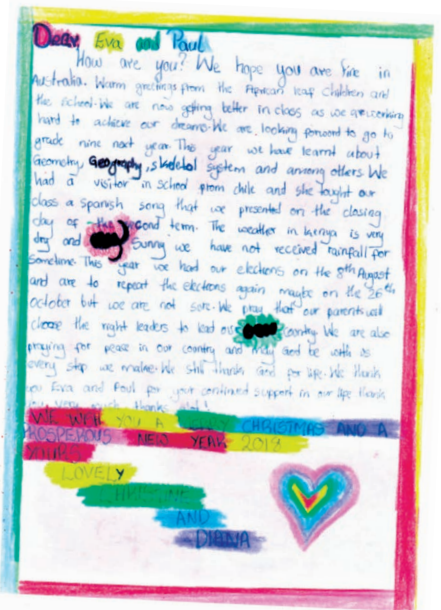 Dear Eva and Paul
How are you? We hope you are fine in
Australia. Warm greetings from the African leaf children and
the school. We are now getting better in class as we are working
hard to achieve our dreams. We are looking forward to go to
grade nine next year. This year we have learnt about
Geometry, Geography, skeletal system and among others. We
had a visitor in school from chile and she taught our
class a spanish song that we presented on the closing
day of the second term. The weather in kenya is very
dry and sunny we have not received rainfall for
sometime. This year we had our elections on the 8th August
and are to repeat the elections again maybe on the 26th
october but we are not sure. We pray that our parents will
choose the right leaders to lead our country. We are also
praying for peace in our country and may God be with us
every step we make. We still thanks God for life. We thank
you Eva and Paul for your continued support in our life thank
you very much thanks
WE WISH YOU A CHRISTMAS AND A
PROSPEROUS NEW YEAR 2018
YOURS
LOVELY
AND
DIANA